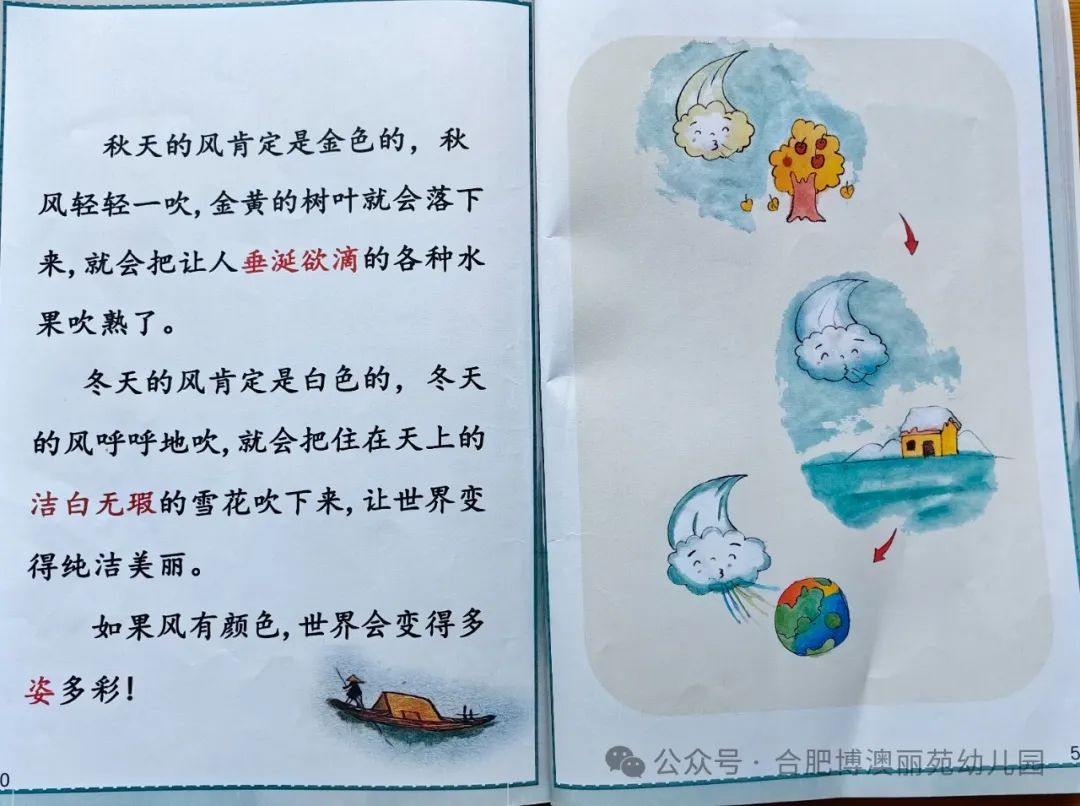 秋天的风肯定是金色的，秋
风轻轻一吹,金黄的树叶就会落下
来,就会把让人垂涎欲滴的各种水
果吹熟了。
冬天的风肯定是白色的，冬天
的风呼呼地吹,就会把住在天上的
洁白无瑕的雪花吹下来,让世界变
得纯洁美丽。
如果风有颜色,世界会变得多
姿多彩!
0
5
公众号·合肥博澳丽苑幼儿园